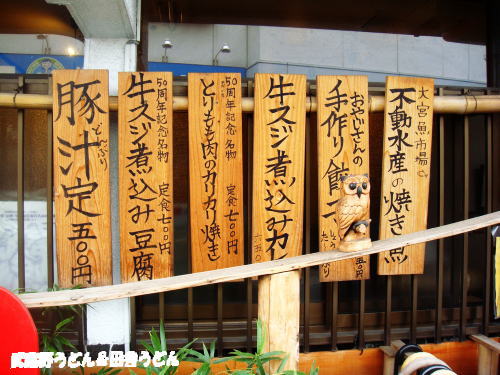 大宮魚市場で、
不動水産の焼き魚
おやじさんの
手作り餃子
牛スジ煮込みカレ
50周年記念名物
とりもも肉のカリカリ焼き
定食 七〇〇円
50周年記念名物
牛スジ煮込み豆腐
定食 七〇〇円
豚汁定 五〇〇円
どんぶり
武蔵野うどん&田舎うどん